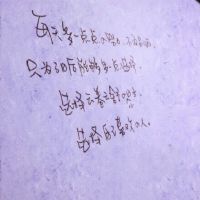 每天多一点点的努力，不为别的，
只为了日后能够多一点选择，
选择云卷云舒的
选择自己喜欢的人。